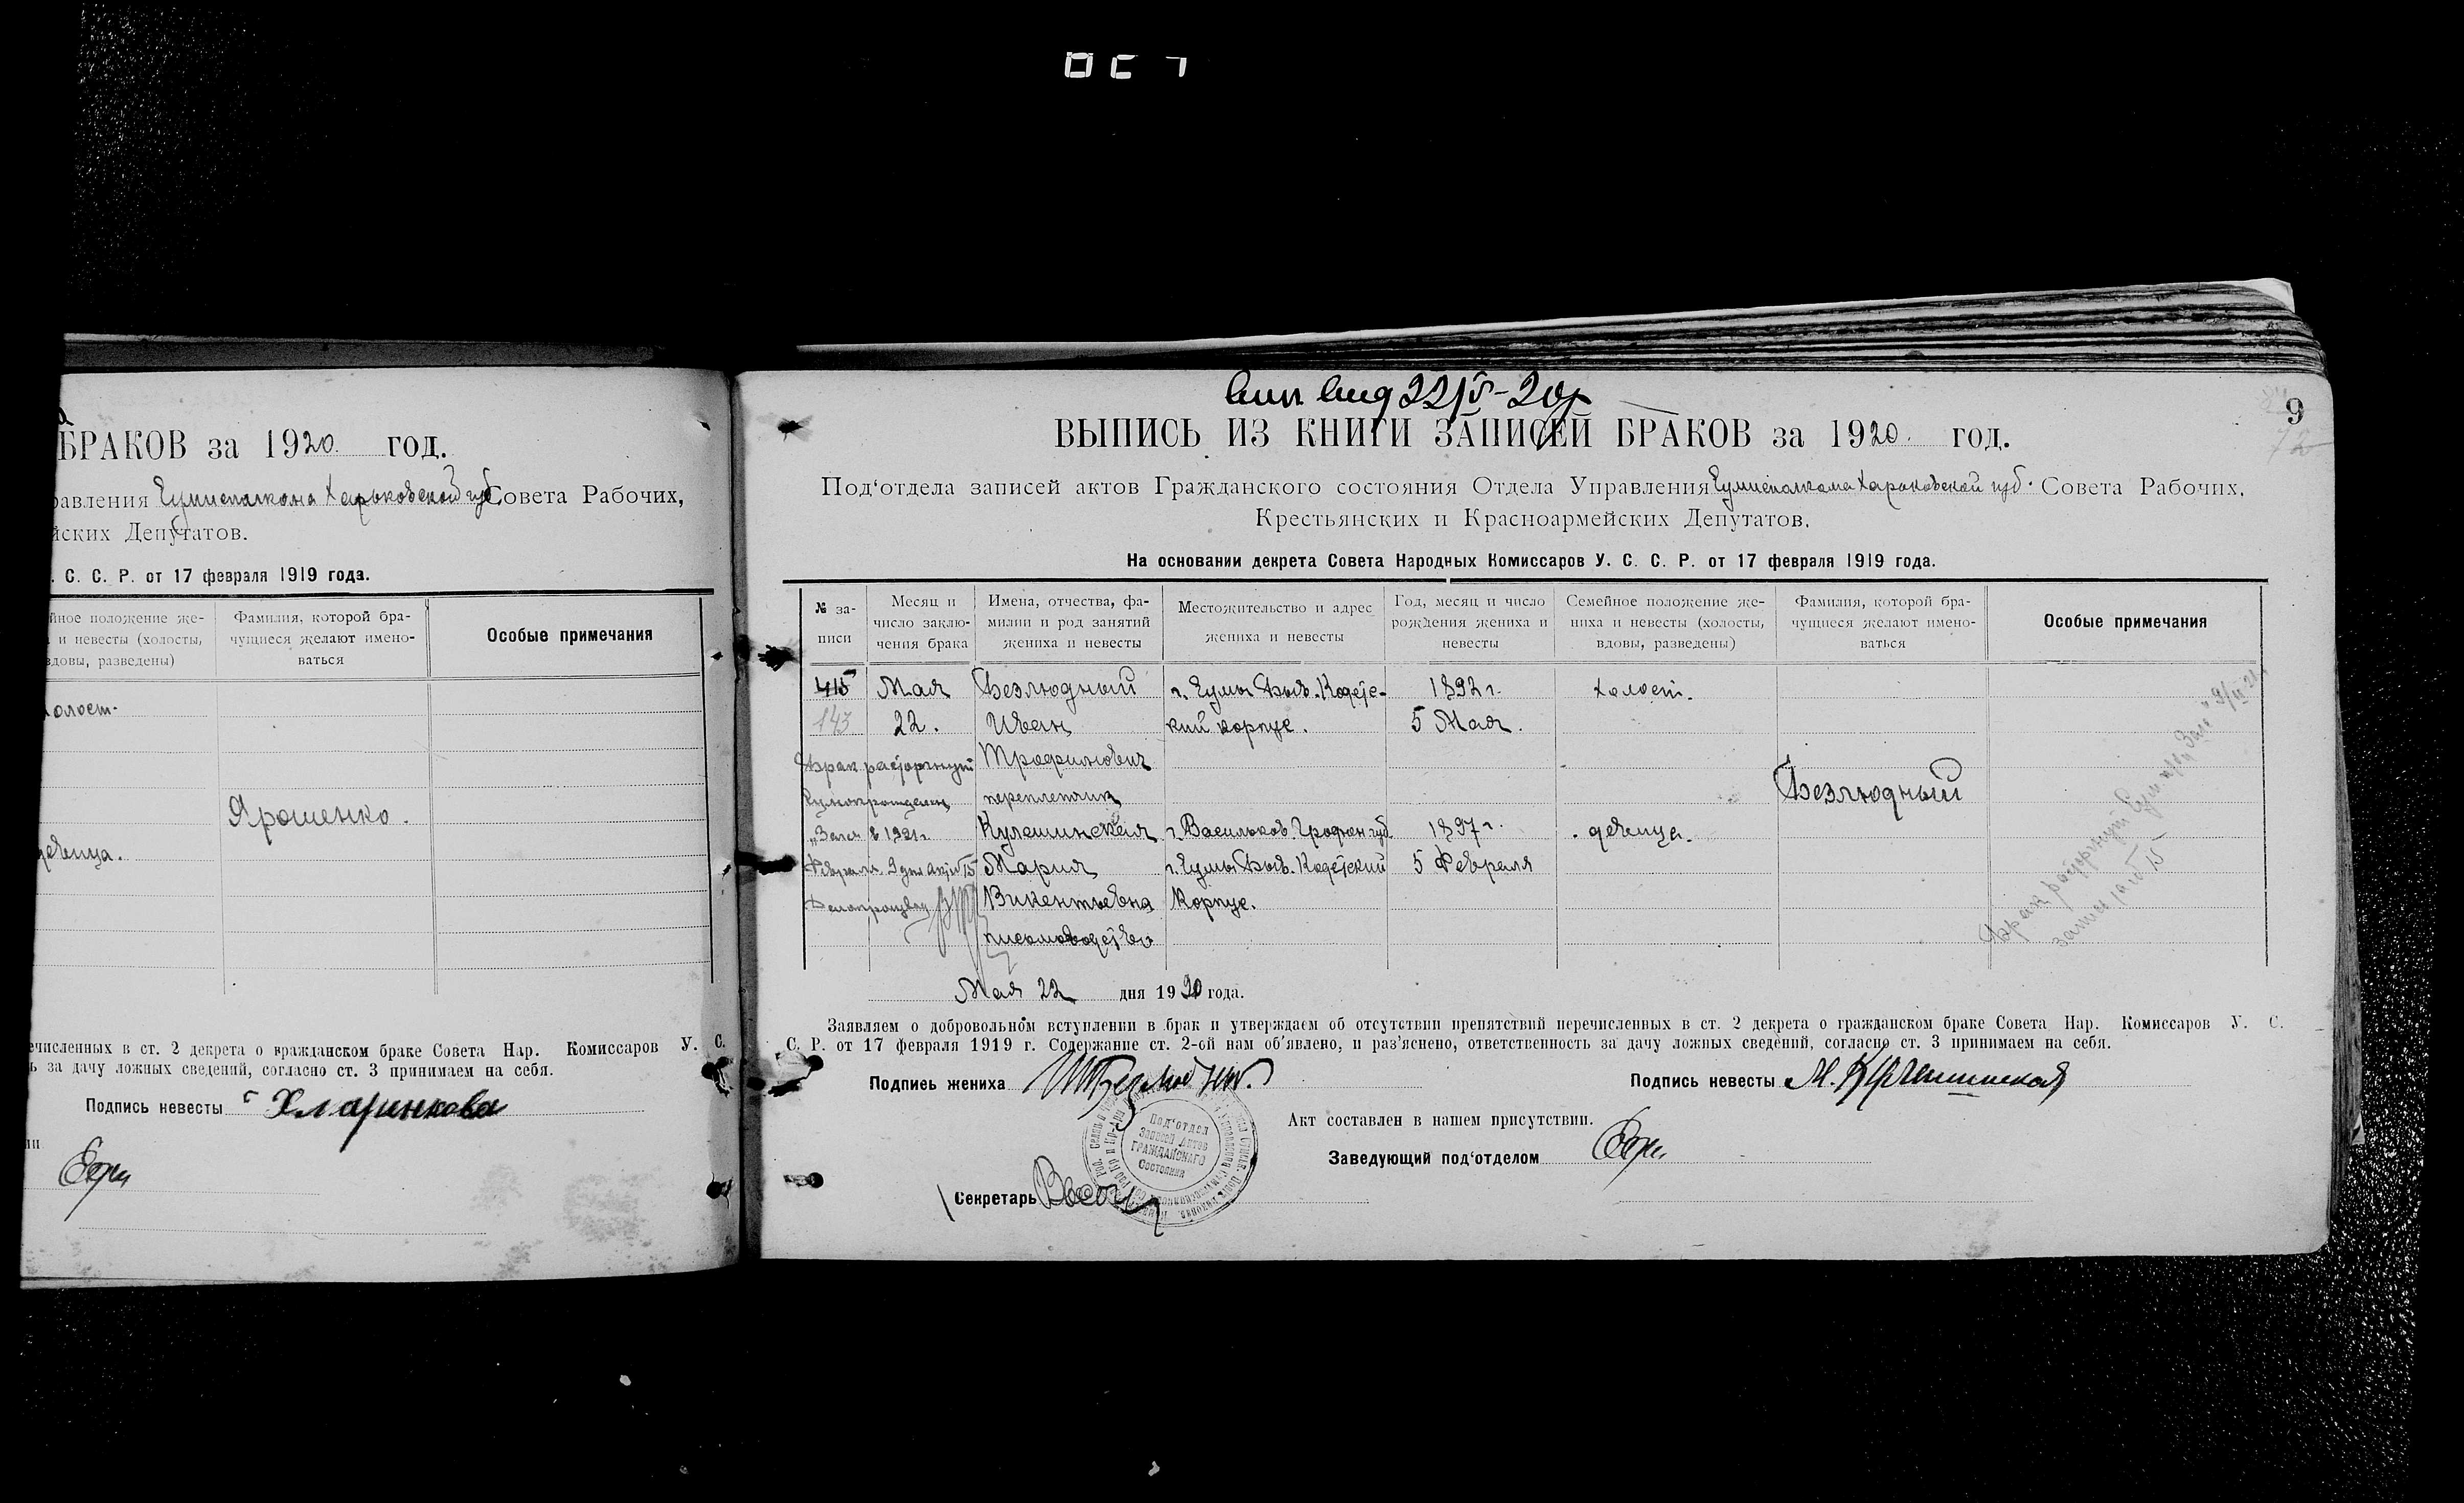 БРАКОВ за 1920 год.
равления Сумисполкома Харьковской губ. Совета Рабочих,
йских Депутатов.
. С. С. Р. от 17 февраля 1919 года.
йное положение же-
и невесты (холосты,
вдовы, разведены)
Фамилия, которой бра-
чущиеся желают имено-
ваться
Особые примечания
олост.
Ярошенко.
девица.
ечисленных в ст. 2 декрета о гражданском браке Совета Нар. Комиссаров У. С.
ь за дачу ложных сведений, согласно ст. 3 принимаем на себя.
Подпись невесты
9
ВЫПИСЬ ИЗ КНИГИ ЗАПИСЕЙ БРАКОВ за 1920. год.
Под‘отдела записей актов Гражданского состояния Отдела Управления Сумисполкома Харьковской губ. Совета Рабочих,
Крестьянских и Красноармейских Депутатов.
На основании декрета Совета Народных Комиссаров У. С. С. Р. от 17 февраля 1919 года.
№ за-
писи
Месяц и
число заклю-
чения брака
Имена, отчества, фа-
милии и род занятий
жениха и невесты
Местожительство и адрес
жениха и невесты
Год, месяц и число
рождения жениха и
невесты
Семейное положение же-
ниха и невесты (холосты,
вдовы, разведены)
Фамилия, которой бра-
чущиеся желают имено-
ваться
Особые примечания
Мая Безлюдный г. Сумы Быв. Кадетс- 1892 г. холост.
143 22. Иван кий корпус. 5 Мая.
Брак расторгнут Трофимович
переплетчик Безлюдный
„Загс“ в 1921 г. Кулешинская г. Васильков. Гроднен губ. 1897 г. девица.
Февраля 9 дня акт № 15 Мария г. Сумы Быв. Кадетский 5 Февраля
Делопроизвод Викентьевна Корпус.
письмоводство
Брак расторгнут
Мая 22 дня 1920 года.
Заявляем о добровольном вступлении в брак и утверждаем об отсутствии препятствий перечисленных в ст. 2 декрета о гражданском браке Совета Нар. Комиссаров У. С.
С. Р. от 17 февраля 1919 г. Содержание ст. 2-ой нам об‘явлено, и раз‘яснено, ответственность за дачу ложных сведений, согласно ст. 3 принимаем на себя.
Подпись жениха
Подпись невесты М. Кулешинская
Акт составлен в нашем присутствии.
Заведующий под‘отделом
Секретарь
Под‘отдел
Записей Актов
ГРАЖДАНСКАГО
Состояния